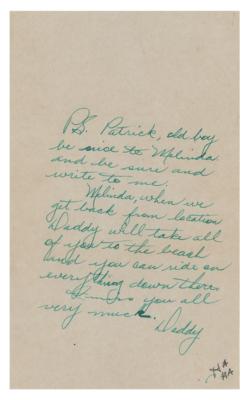 P.S. Patrick, old boy
be nice to Melinda
and be sure and
write to me.
Melinda, when we
get back from location
Daddy will take all
of you to the beach
and you can ride on
everything down there.
I miss you all
very much.
Daddy
HA
HA